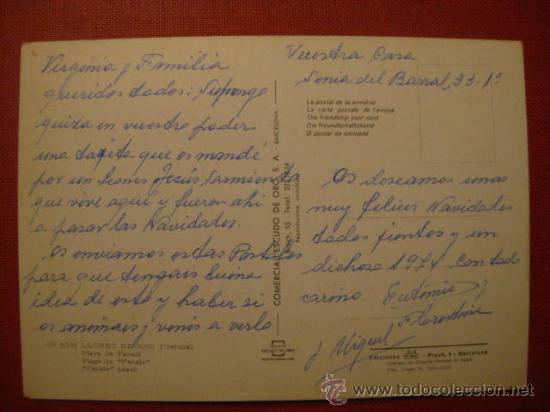 Virginia y Familia
queridos todos: Supongo
quiza en vuestro poder
una tarjeta que os mandé
por un Jesús Sarmiento
que vive aqui y fueron ahi
a pasar las Navidades.
os enviamos estas Postales
para que tengais buena
idea de esto y haber si
os animais; venis a verlo
LLORET DE MAR (Gerona)
Playa de Fanals
Plage de "Fanals"
"Fanals" beach
COMERCIAL ESCUDO DE ORO, S. A. - BARCELONA
Vuestra Casa
Sonia del Barral 33-1º
La postal de la amistad
La carte postale de l'amitié
The friendship post card
Die Freundschaftskarte
O postal da amizade
Os deseamos unas
muy felices Navidades
todos juntos y un
dichoso 1974 con todo
cariño Eutimio
Florentina
y Miguel
Ediciones Piqué, 1 - Barcelona
todocoleccion.net